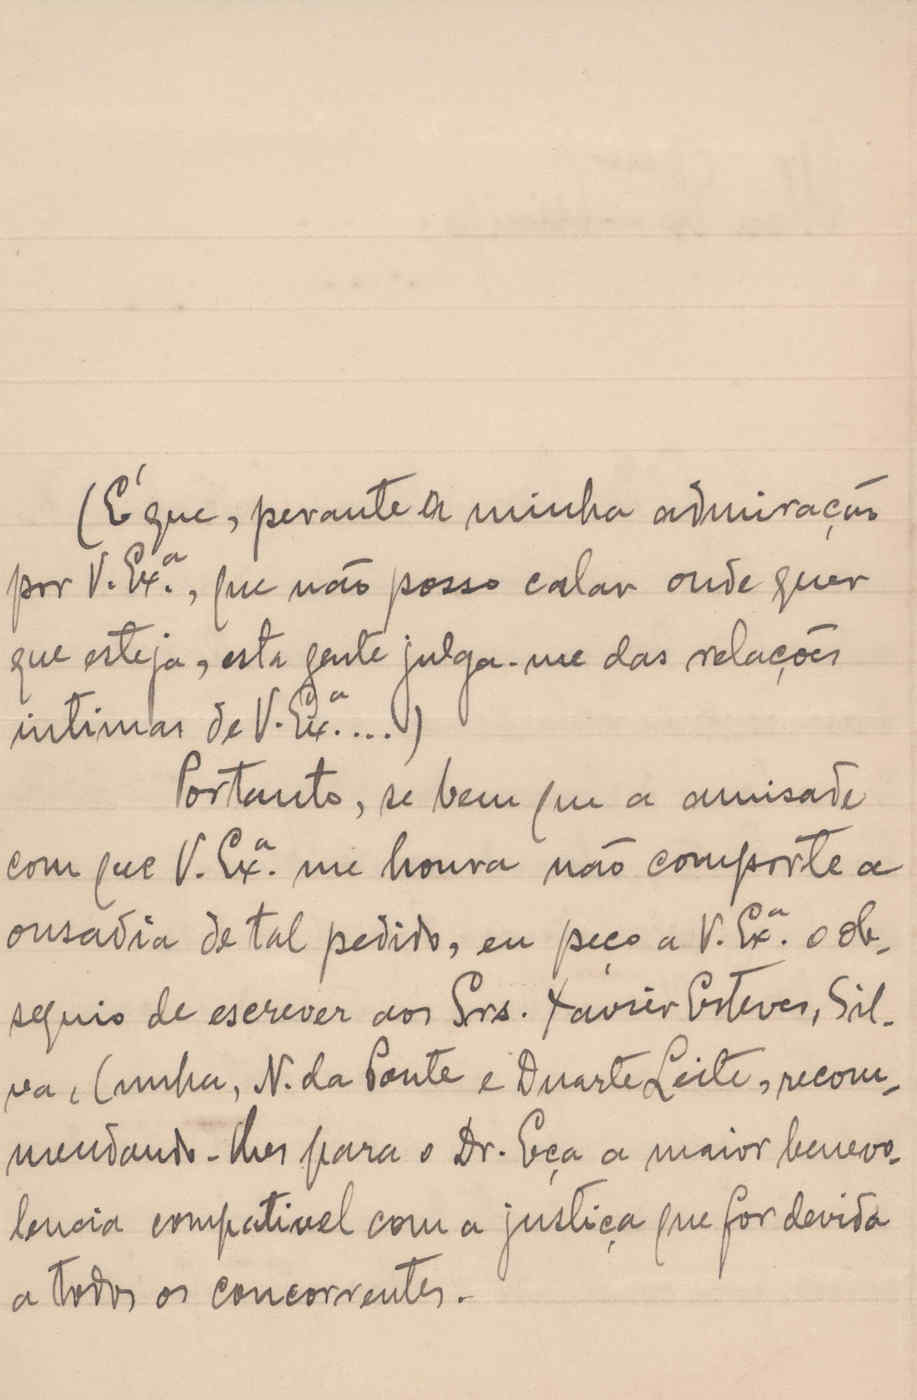 (É que, perante a minha admiração
por V. Ex.ª, que não posso calar onde quer
que esteja, esta gente julga-me das relações
intimas de V. Ex.ª....)
Portanto, se bem que a amisade
com que V. Ex.ª me honra não comporte a
ousadia de tal pedido, eu peço a V. Ex.ª o ob-
sequio de escrever aos Srs. Xavier Esteves, Sil-
va, Cunha, N. da Ponte e Duarte Leite, recom-
mendando-lhes para o Dr. Eça a maior benevo-
lencia compativel com a justiça que for devida
a todos os concorrentes.